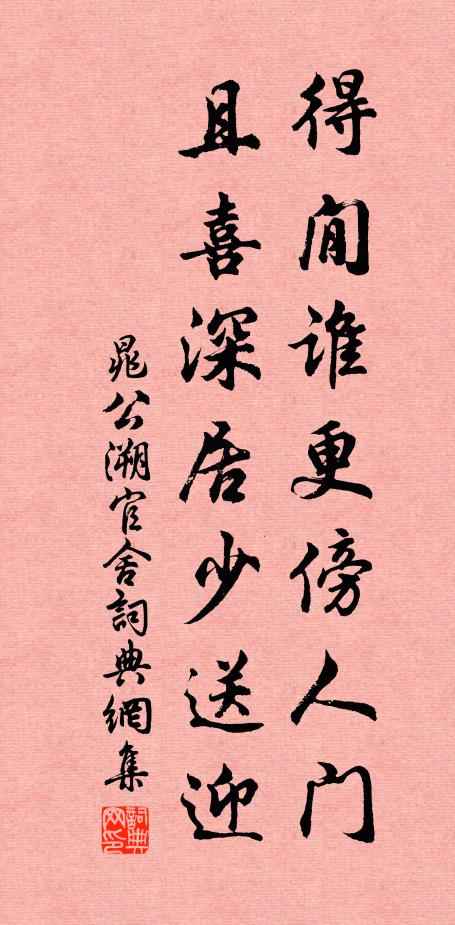 得闲谁更傍人门
且喜深居少送迎
晁公溯官舍詞典網集
詞典网印